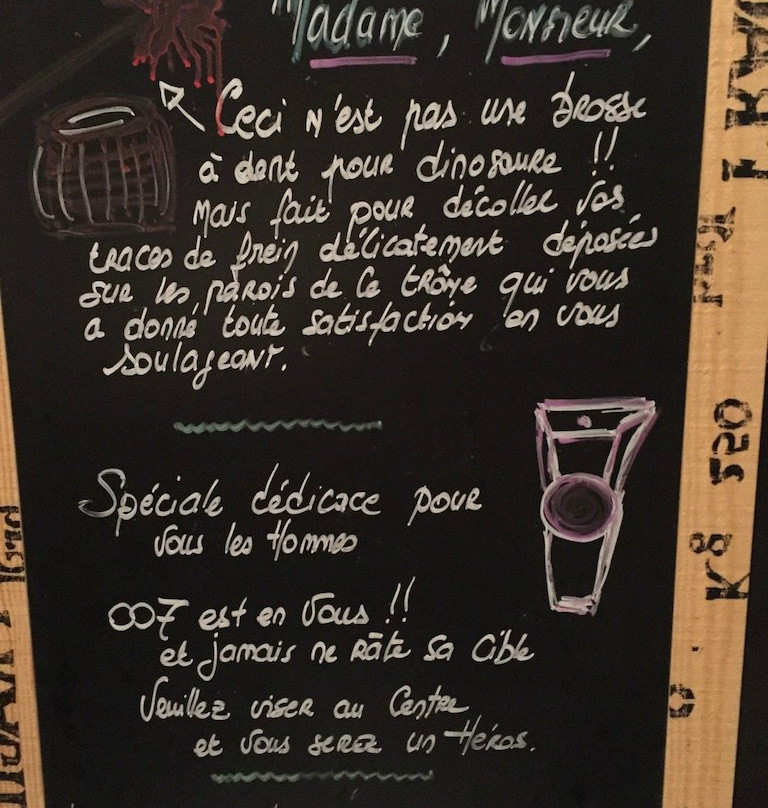 Madame, Monsieur,
Ceci n'est pas une Brosse
à dent pour dinosaure !!
Mais fait pour décoller vos
traces de frein délicatement déposées
sur les parois de ce trône qui vous
a donné toute satisfaction en vous
soulageant.
Spéciale dédicace pour
vous les Hommes
007 est en Vous !!
et jamais ne râte sa Cible
Veuillez viser au Centre
et vous serez un Héros.
K8 520